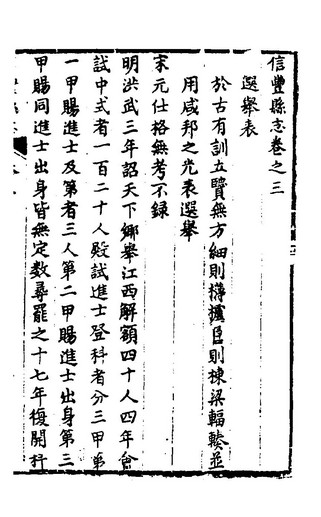 信豐縣志卷之三
選舉表
於古有訓立賢無方細則欂櫨臣則棟梁輻輳並
用咸邦之光表選舉
宋元仕格無考不錄
明洪武三年詔天下鄉舉江西解額四十人四年會
試中式者一百二十人殿試進士登科者分三甲第
一甲賜進士及第者三人第二甲賜進士出身第三
甲賜同進士出身皆無定數尋罷之十七年復開科